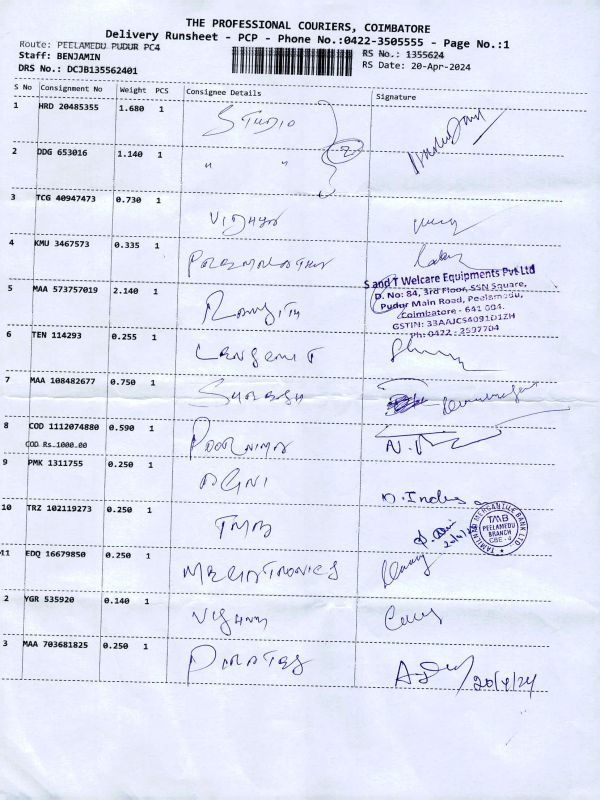 THE PROFESSIONAL COURIERS, COIMBATORE
Delivery Runsheet - PCP - Phone No.:0422-3505555 - Page No.:1
Route: PEELAMEDU PUDUR PC4
RS No.: 1355624
Staff: BENJAMIN
RS Date: 20-Apr-2024
DRS No.: DCJB135562401
S No Consignment No Weight PCS Consignee Details Signature
1 HRD 20485355 1.680 1 STUDIO
2 DDG 653016 1.140 1 " " 2
3 TCG 40947473 0.730 1
4 KMU 3467573 0.335 1
S and T Welcare Equipments Pvt Ltd
D. No: 84, 3rd Floor, SSN Square,
Pudur Main Road, Peelamedu,
Coimbatore - 641 004.
GSTIN: 33AAJCS4091D1ZH
Ph: 0422 - 2597704
5 MAA 573757019 2.140 1 RANJITH
6 TEN 114293 0.255 1
7 MAA 108482677 0.750 1 SURESH
8 COD 1112074880 0.590 1 POORNIMA
COD Rs.1000.00
9 PMK 1311755 0.250 1 AGNI
10 TRZ 102119273 0.250 1 TMB
TAMILNAD MERCANTILE BANK LTD
TMB
PEELAMEDU
BRANCH
CBE - 4
11 EDQ 16679850 0.250 1 MECHATRONICS
2 YGR 535920 0.140 1
3 MAA 703681825 0.250 1 20/4/24